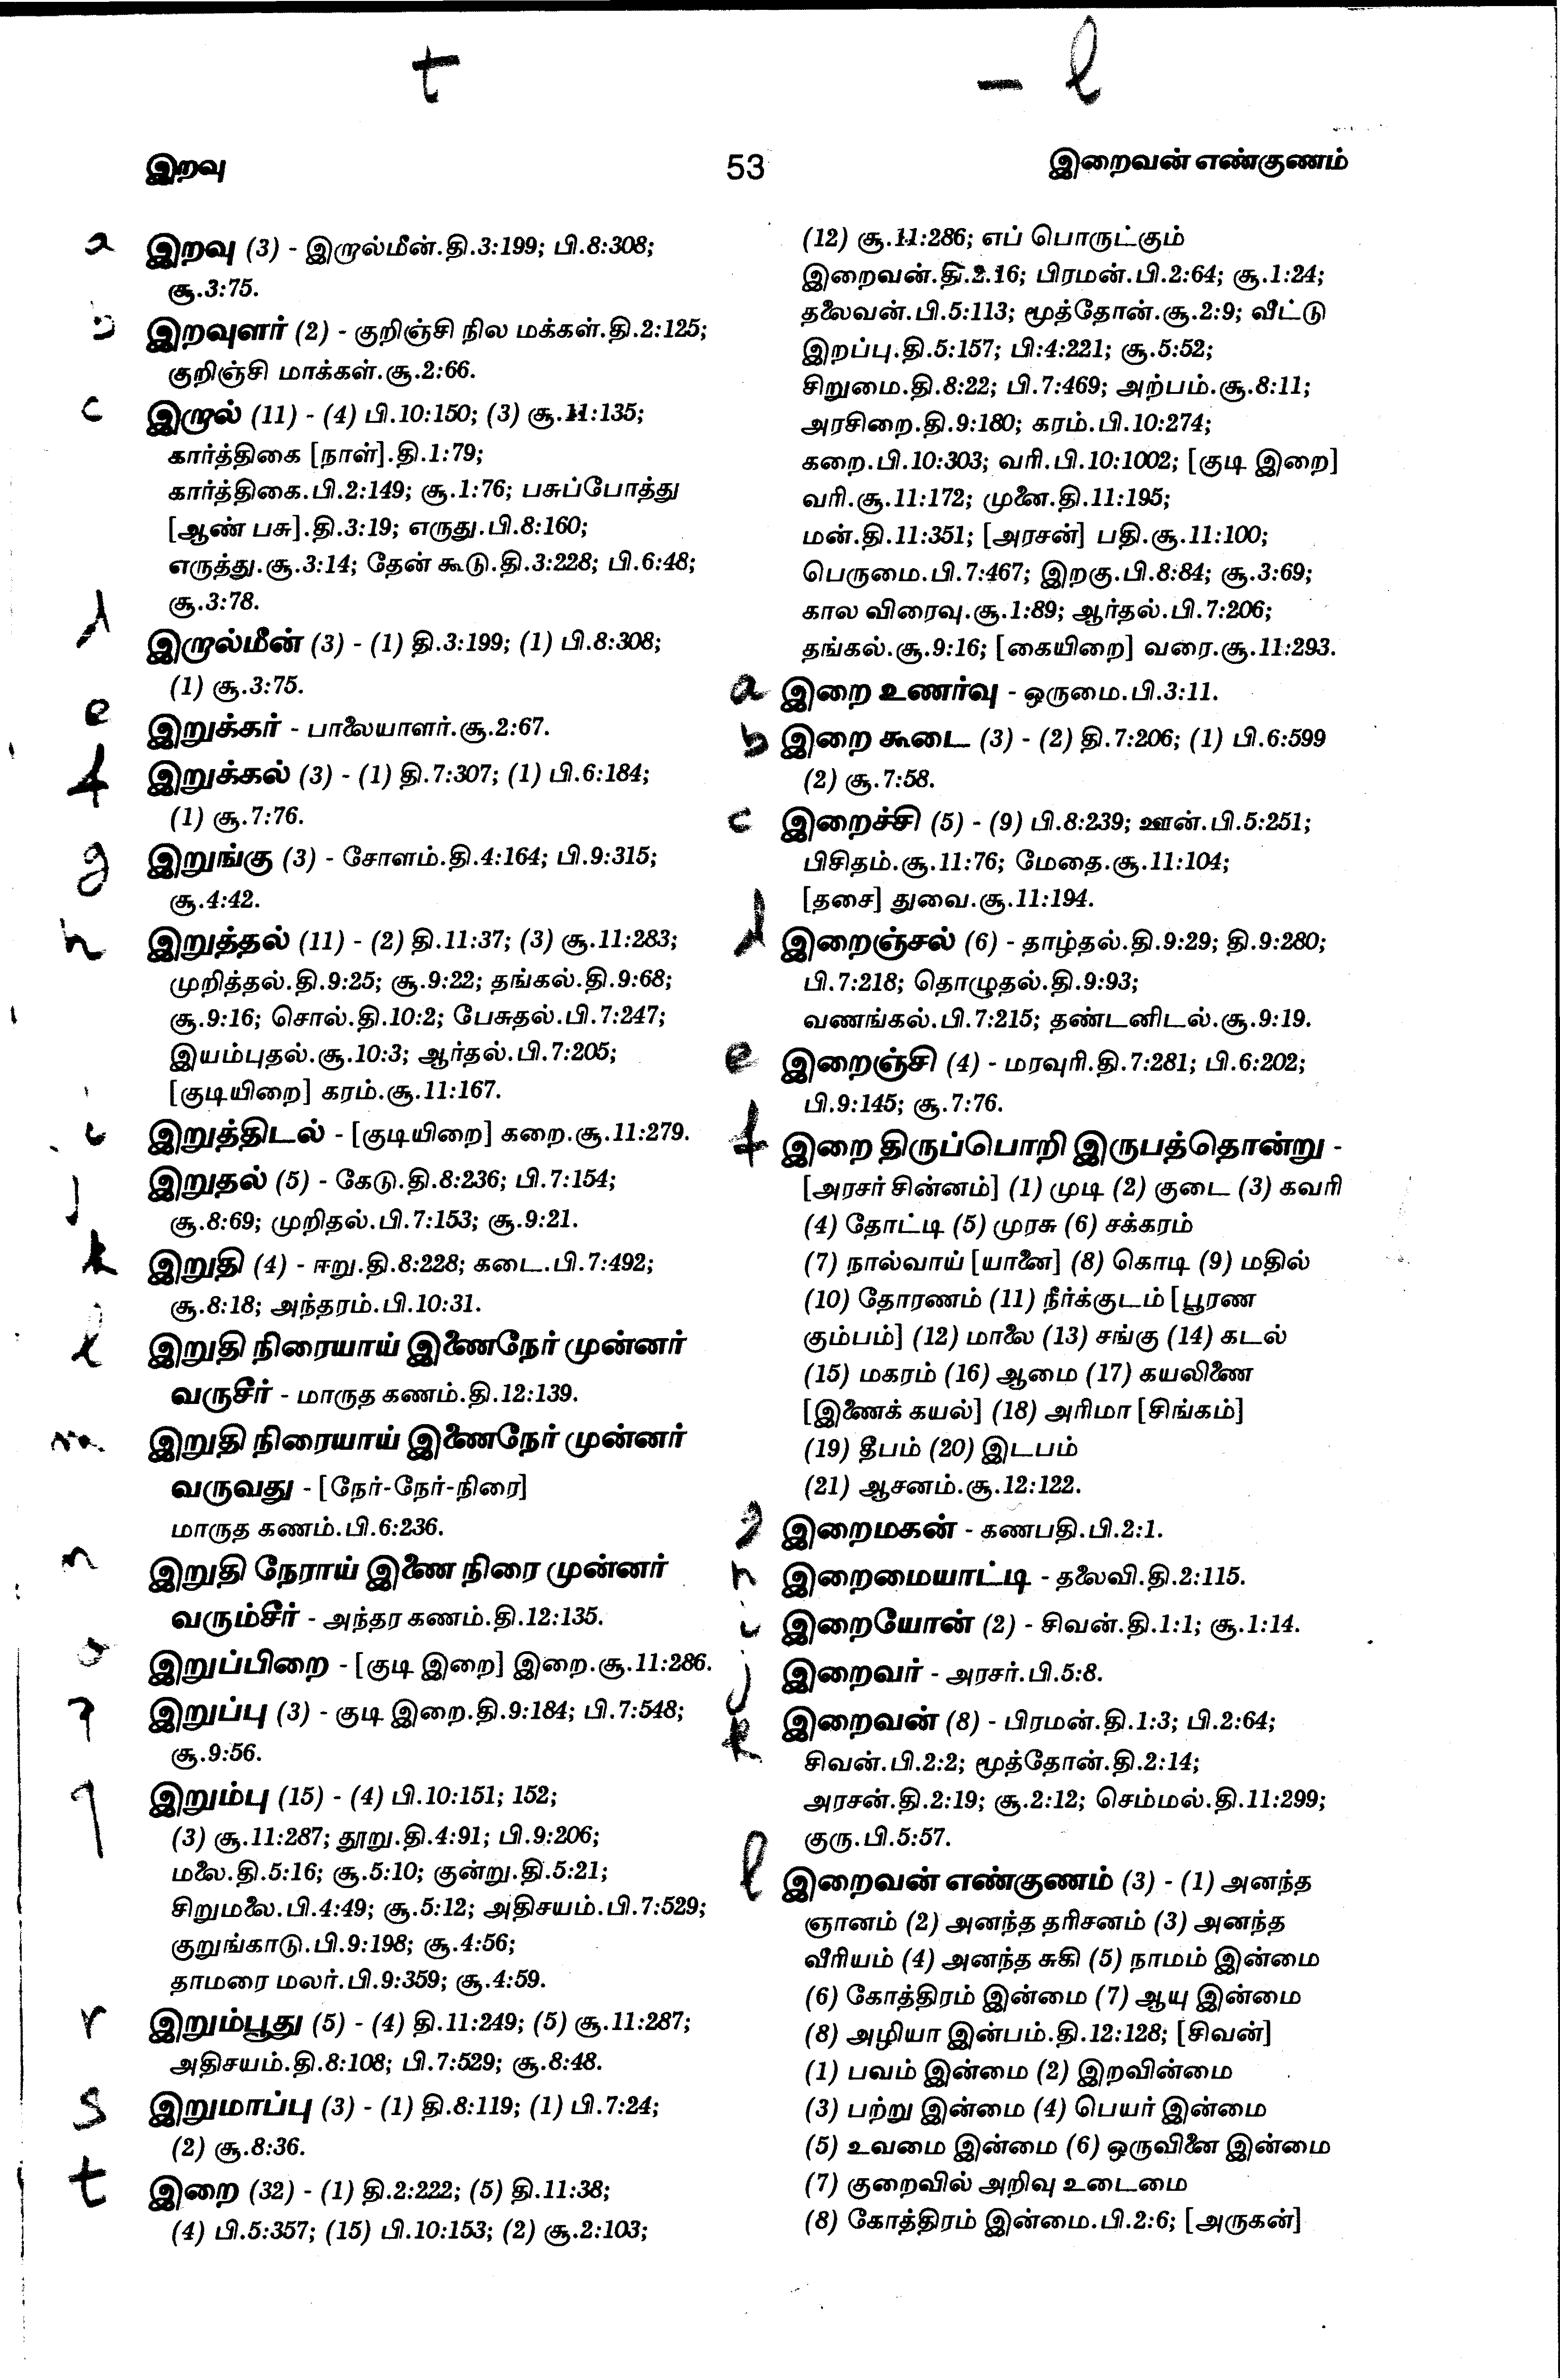 t - l
இறவு 53 இறைவன் எண்குணம்
a இறவு (3) - இறால்மீன்.தி.3:199; பி.8:308;
சூ.3:75.
b இறவுளர் (2) - குறிஞ்சி நில மக்கள்.தி.2:125;
குறிஞ்சி மாக்கள்.சூ.2:66.
c இறால் (11) - (4) பி.10:150; (3) சூ.11:135;
கார்த்திகை [நாள்].தி.1:79;
கார்த்திகை.பி.2:149; சூ.1:76; பசுப்போத்து
[ஆண் பசு].தி.3:19; எருது.பி.8:160;
எருத்து.சூ.3:14; தேன் கூடு.தி.3:228; பி.6:48;
சூ.3:78.
d இறால்மீன் (3) - (1) தி.3:199; (1) பி.8:308;
(1) சூ.3:75.
e இறுக்கர் - பாலையாளர்.சூ.2:67.
f இறுக்கல் (3) - (1) தி.7:307; (1) பி.6:184;
(1) சூ.7:76.
g இறுங்கு (3) - சோளம்.தி.4:164; பி.9:315;
சூ.4:42.
h இறுத்தல் (11) - (2) தி.11:37; (3) சூ.11:283;
முறித்தல்.தி.9:25; சூ.9:22; தங்கல்.தி.9:68;
சூ.9:16; சொல்.தி.10:2; பேசுதல்.பி.7:247;
இயம்புதல்.சூ.10:3; ஆர்தல்.பி.7:205;
[குடியிறை] கரம்.சூ.11:167.
i இறுத்திடல் - [குடியிறை] கறை.சூ.11:279.
j இறுதல் (5) - கேடு.தி.8:236; பி.7:154;
சூ.8:69; முறிதல்.பி.7:153; சூ.9:21.
k இறுதி (4) - ஈறு.தி.8:228; கடை.பி.7:492;
சூ.8:18; அந்தரம்.பி.10:31.
l இறுதி நிரையாய் இணைநேர் முன்னர்
வருசீர் - மாருத கணம்.தி.12:139.
m இறுதி நிரையாய் இணைநேர் முன்னர்
வருவது - [நேர்-நேர்-நிரை]
மாருத கணம்.பி.6:236.
n இறுதி நேராய் இணை நிரை முன்னர்
வரும்சீர் - அந்தர கணம்.தி.12:135.
o இறுப்பிறை - [குடி இறை] இறை.சூ.11:286.
p இறுப்பு (3) - குடி இறை.தி.9:184; பி.7:548;
சூ.9:56.
q இறும்பு (15) - (4) பி.10:151; 152;
(3) சூ.11:287; தூறு.தி.4:91; பி.9:206;
மலை.தி.5:16; சூ.5:10; குன்று.தி.5:21;
சிறுமலை.பி.4:49; சூ.5:12; அதிசயம்.பி.7:529;
குறுங்காடு.பி.9:198; சூ.4:56;
தாமரை மலர்.பி.9:359; சூ.4:59.
r இறும்பூது (5) - (4) தி.11:249; (5) சூ.11:287;
அதிசயம்.தி.8:108; பி.7:529; சூ.8:48.
s இறுமாப்பு (3) - (1) தி.8:119; (1) பி.7:24;
(2) சூ.8:36.
t இறை (32) - (1) தி.2:222; (5) தி.11:38;
(4) பி.5:357; (15) பி.10:153; (2) சூ.2:103;
(12) சூ.11:286; எப் பொருட்கும்
இறைவன்.தி.2.16; பிரமன்.பி.2:64; சூ.1:24;
தலைவன்.பி.5:113; மூத்தோன்.சூ.2:9; வீட்டு
இறப்பு.தி.5:157; பி:4:221; சூ.5:52;
சிறுமை.தி.8:22; பி.7:469; அற்பம்.சூ.8:11;
அரசிறை.தி.9:180; கரம்.பி.10:274;
கறை.பி.10:303; வரி.பி.10:1002; [குடி இறை]
வரி.சூ.11:172; முனை.தி.11:195;
மன்.தி.11:351; [அரசன்] பதி.சூ.11:100;
பெருமை.பி.7:467; இறகு.பி.8:84; சூ.3:69;
கால விரைவு.சூ.1:89; ஆர்தல்.பி.7:206;
தங்கல்.சூ.9:16; [கையிறை] வரை.சூ.11:293.
a இறை உணர்வு - ஒருமை.பி.3:11.
b இறை கூடை (3) - (2) தி.7:206; (1) பி.6:599
(2) சூ.7:58.
c இறைச்சி (5) - (9) பி.8:239; ஊன்.பி.5:251;
பிசிதம்.சூ.11:76; மேதை.சூ.11:104;
[தசை] துவை.சூ.11:194.
d இறைஞ்சல் (6) - தாழ்தல்.தி.9:29; தி.9:280;
பி.7:218; தொழுதல்.தி.9:93;
வணங்கல்.பி.7:215; தண்டனிடல்.சூ.9:19.
e இறைஞ்சி (4) - மரவுரி.தி.7:281; பி.6:202;
பி.9:145; சூ.7:76.
f இறை திருப்பொறி இருபத்தொன்று -
[அரசர் சின்னம்] (1) முடி (2) குடை (3) கவரி
(4) தோட்டி (5) முரசு (6) சக்கரம்
(7) நால்வாய் [யானை] (8) கொடி (9) மதில்
(10) தோரணம் (11) நீர்க்குடம் [பூரண
கும்பம்] (12) மாலை (13) சங்கு (14) கடல்
(15) மகரம் (16) ஆமை (17) கயலிணை
[இணைக் கயல்] (18) அரிமா [சிங்கம்]
(19) தீபம் (20) இடபம்
(21) ஆசனம்.சூ.12:122.
g இறைமகன் - கணபதி.பி.2:1.
h இறைமையாட்டி - தலைவி.தி.2:115.
i இறையோன் (2) - சிவன்.தி.1:1; சூ.1:14.
j இறைவர் - அரசர்.பி.5:8.
k இறைவன் (8) - பிரமன்.தி.1:3; பி.2:64;
சிவன்.பி.2:2; மூத்தோன்.தி.2:14;
அரசன்.தி.2:19; சூ.2:12; செம்மல்.தி.11:299;
குரு.பி.5:57.
l இறைவன் எண்குணம் (3) - (1) அனந்த
ஞானம் (2) அனந்த தரிசனம் (3) அனந்த
வீரியம் (4) அனந்த சுகி (5) நாமம் இன்மை
(6) கோத்திரம் இன்மை (7) ஆயு இன்மை
(8) அழியா இன்பம்.தி.12:128; [சிவன்]
(1) பவம் இன்மை (2) இறவின்மை
(3) பற்று இன்மை (4) பெயர் இன்மை
(5) உவமை இன்மை (6) ஒருவினை இன்மை
(7) குறைவில் அறிவு உடைமை
(8) கோத்திரம் இன்மை.பி.2:6; [அருகன்]